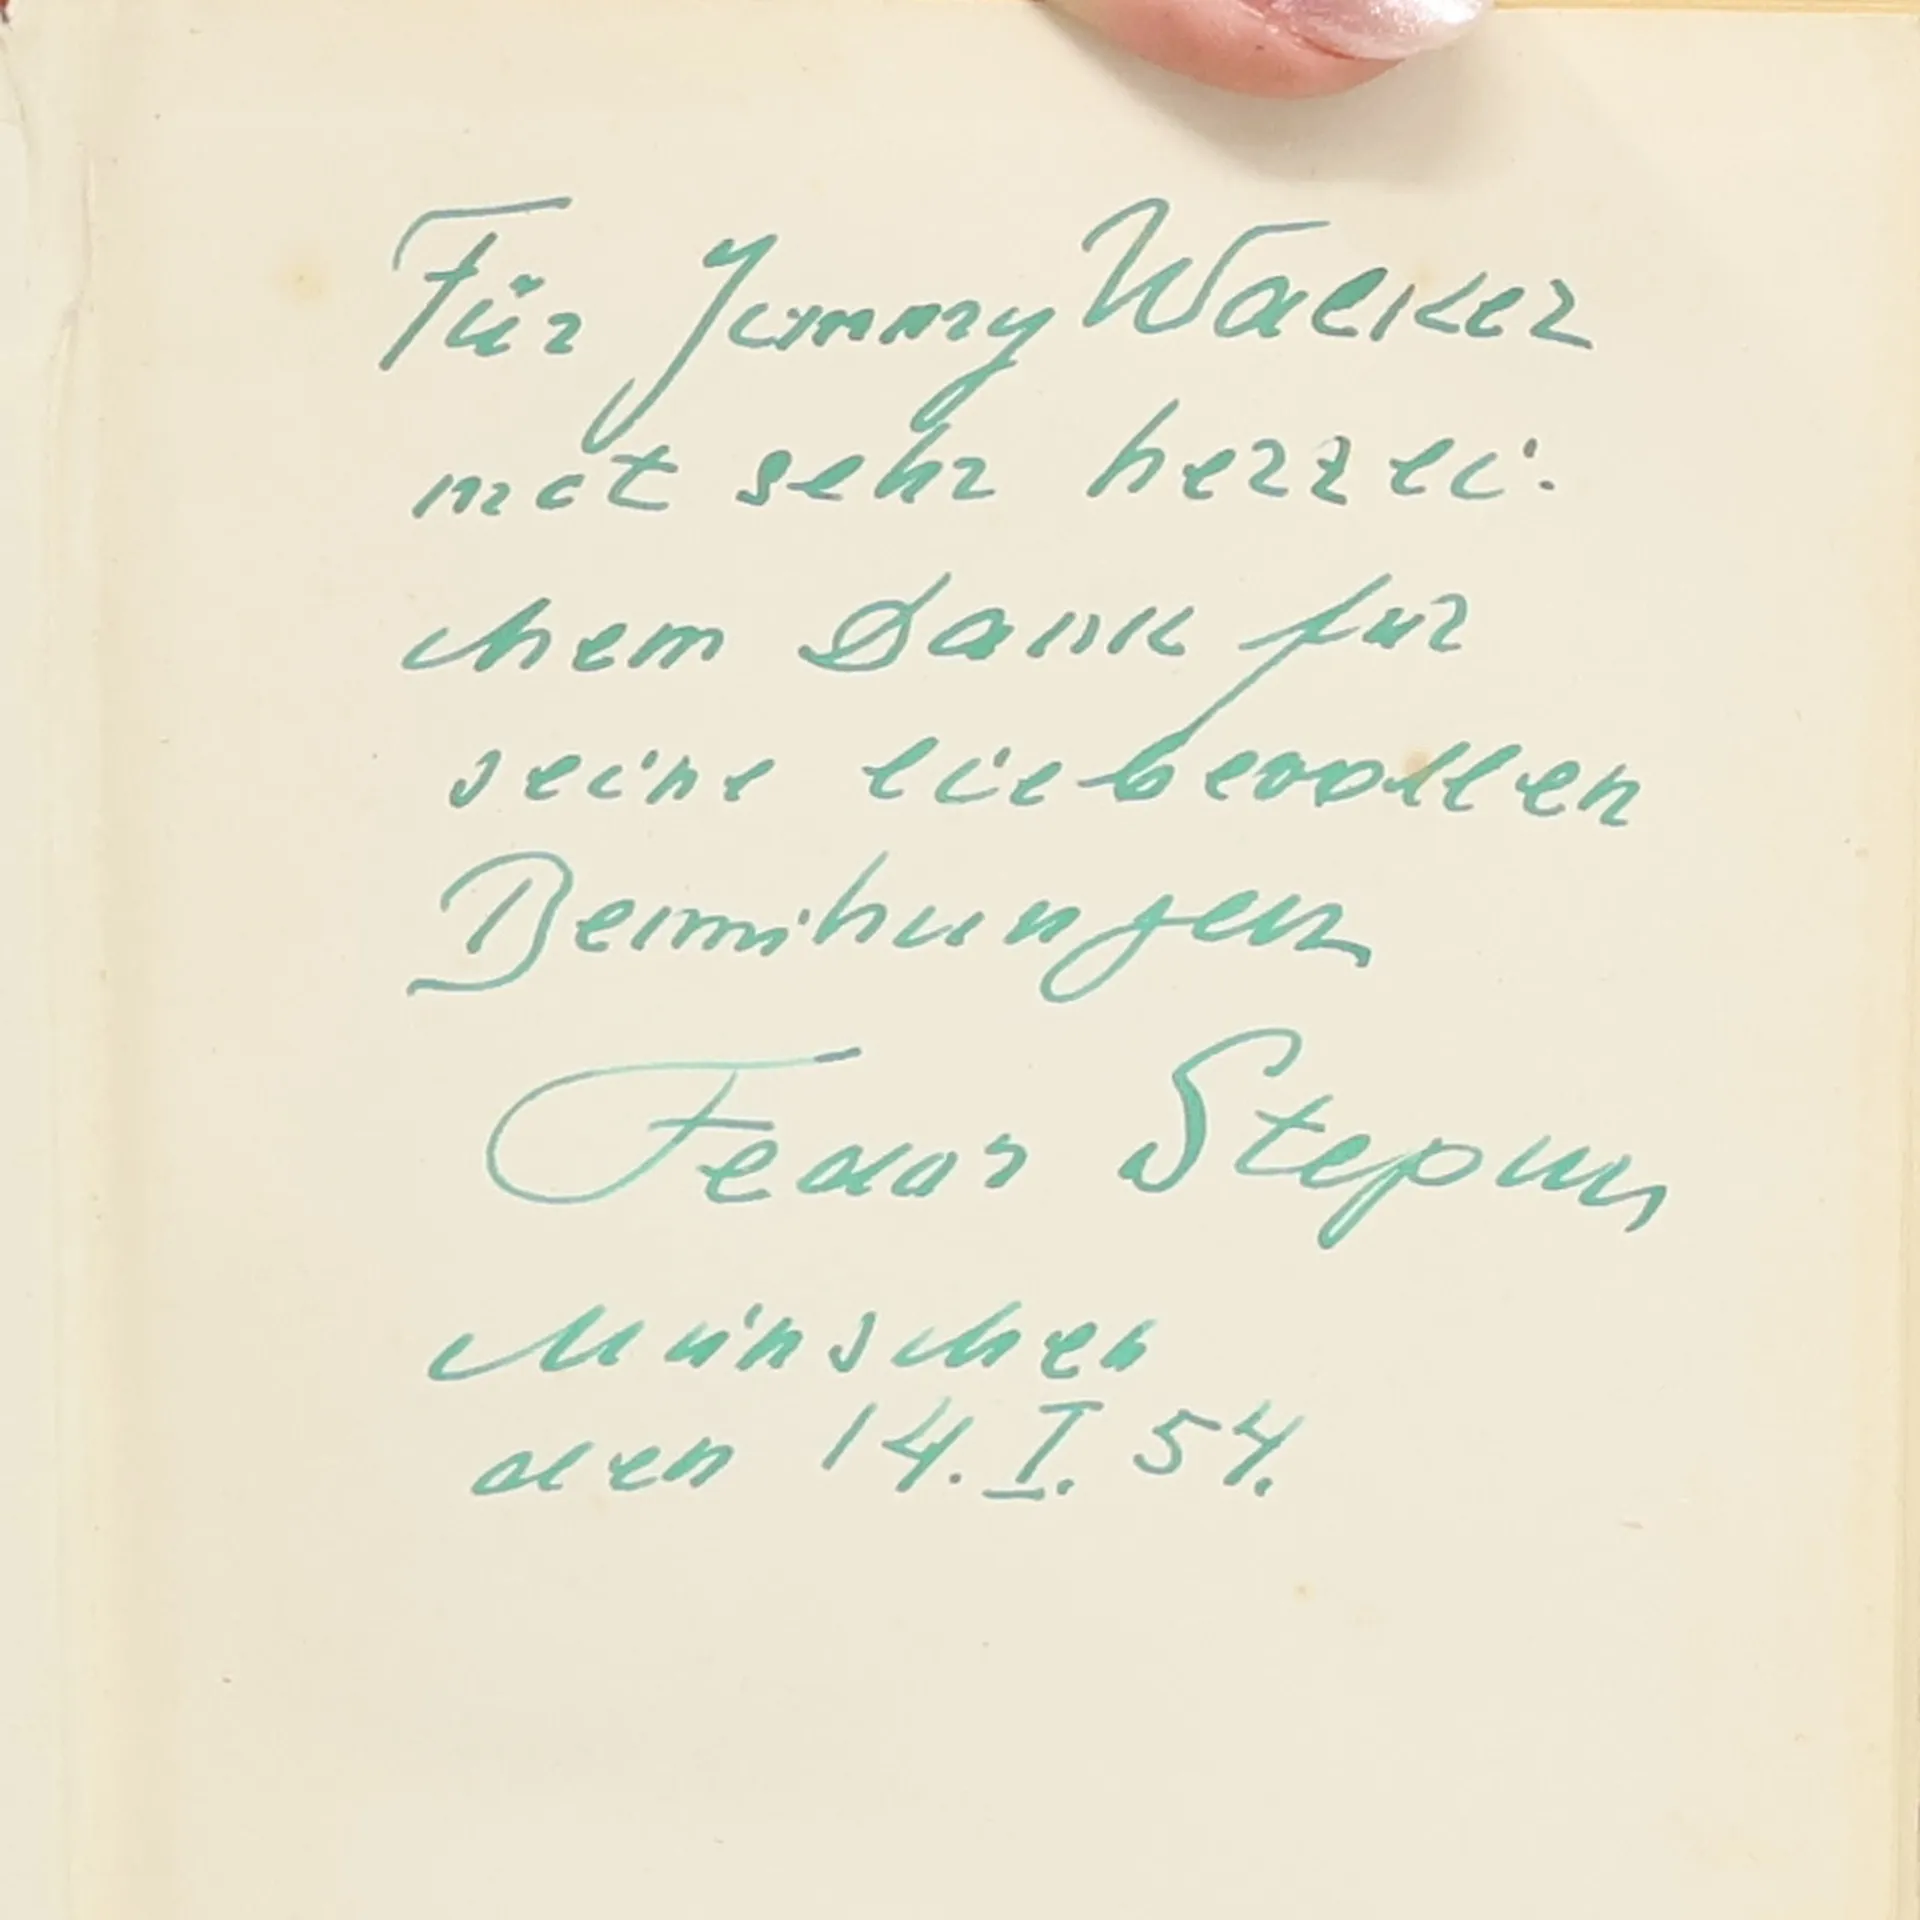 Für Jimmy Walker
mit sehr herzli-
chem Dank für
seine liebevollen
Bemühungen
Fedor Stepun
Münschen
den 14. I. 54.